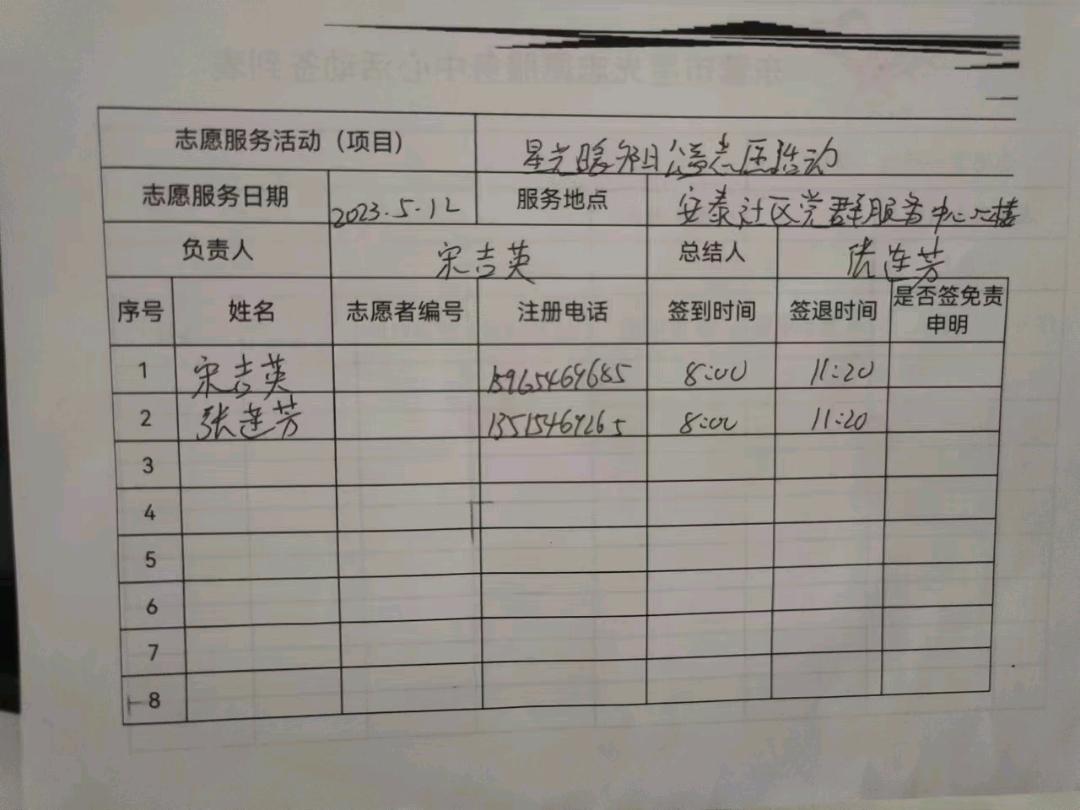 志愿服务活动（项目） 星光暖夕阳公益志愿活动
志愿服务日期 2023.5.12 服务地点 安泰社区党群服务中心二楼
负责人 宋吉英 总结人 张连芳
序号 姓名 志愿者编号 注册电话 签到时间 签退时间 是否签免责
申明
1 宋吉英 15965469685 8:00 11:20
2 张连芳 13515469265 8:00 11:20
3
4
5
6
7
8